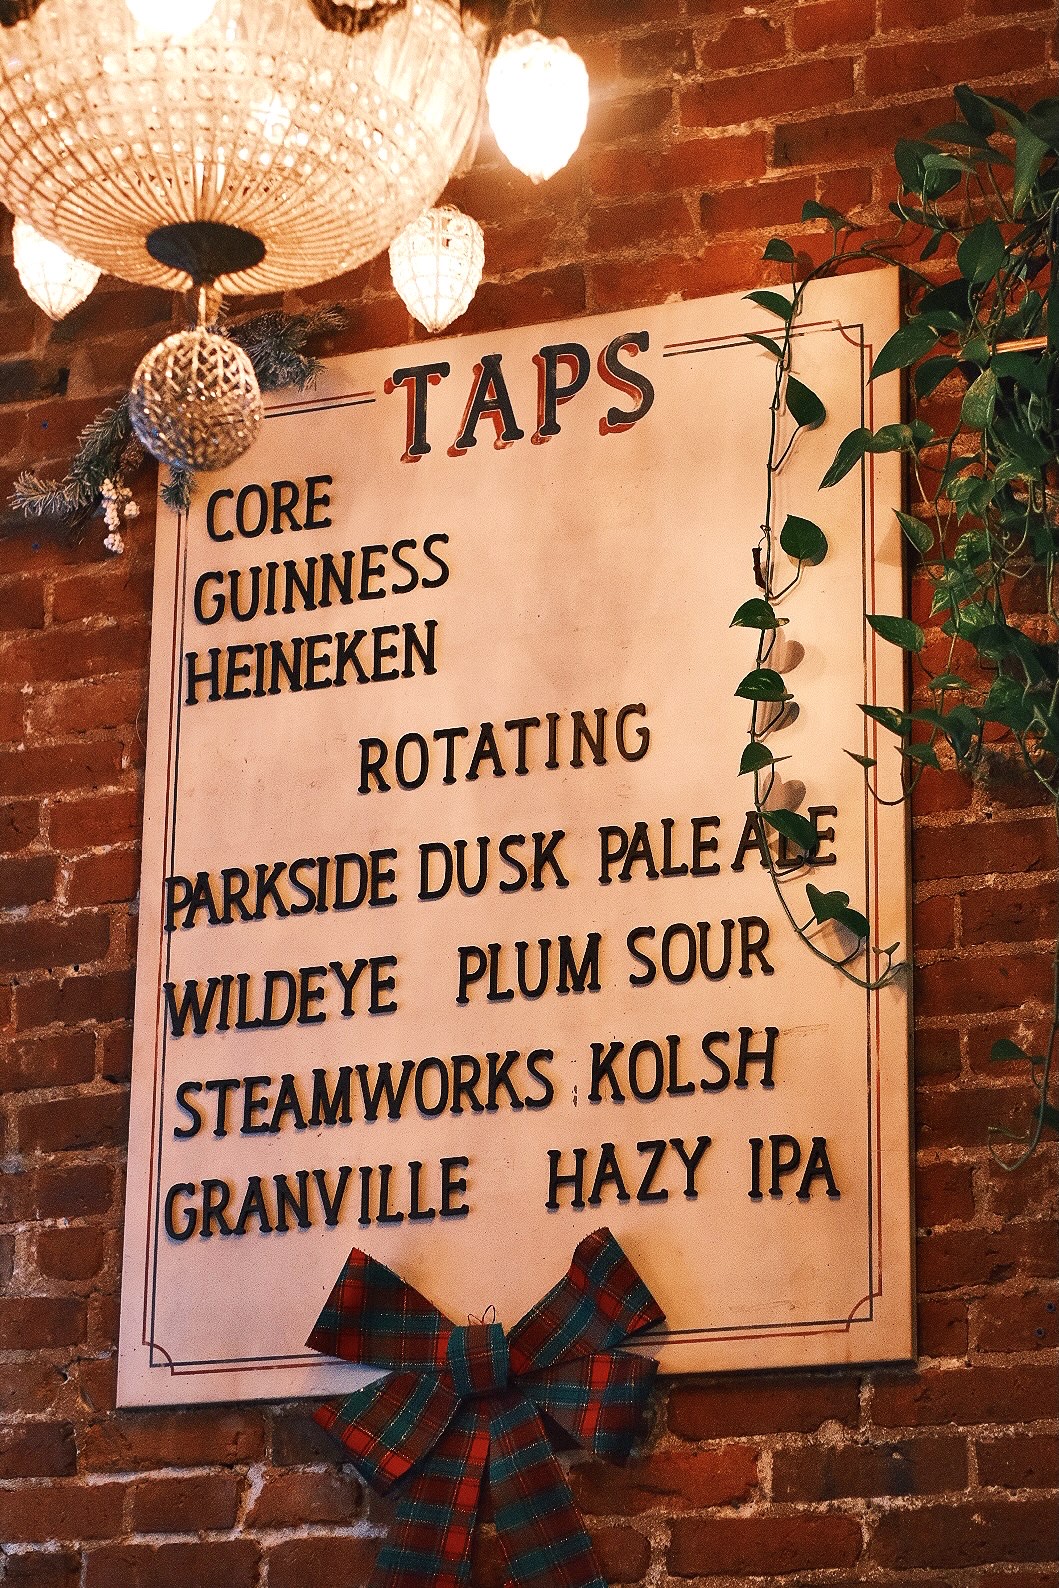 TAPS
CORE
GUINNESS
HEINEKEN
ROTATING
PARKSIDE DUSK PALE ALE
WILDEYE PLUM SOUR
STEAMWORKS KOLSH
GRANVILLE HAZY IPA